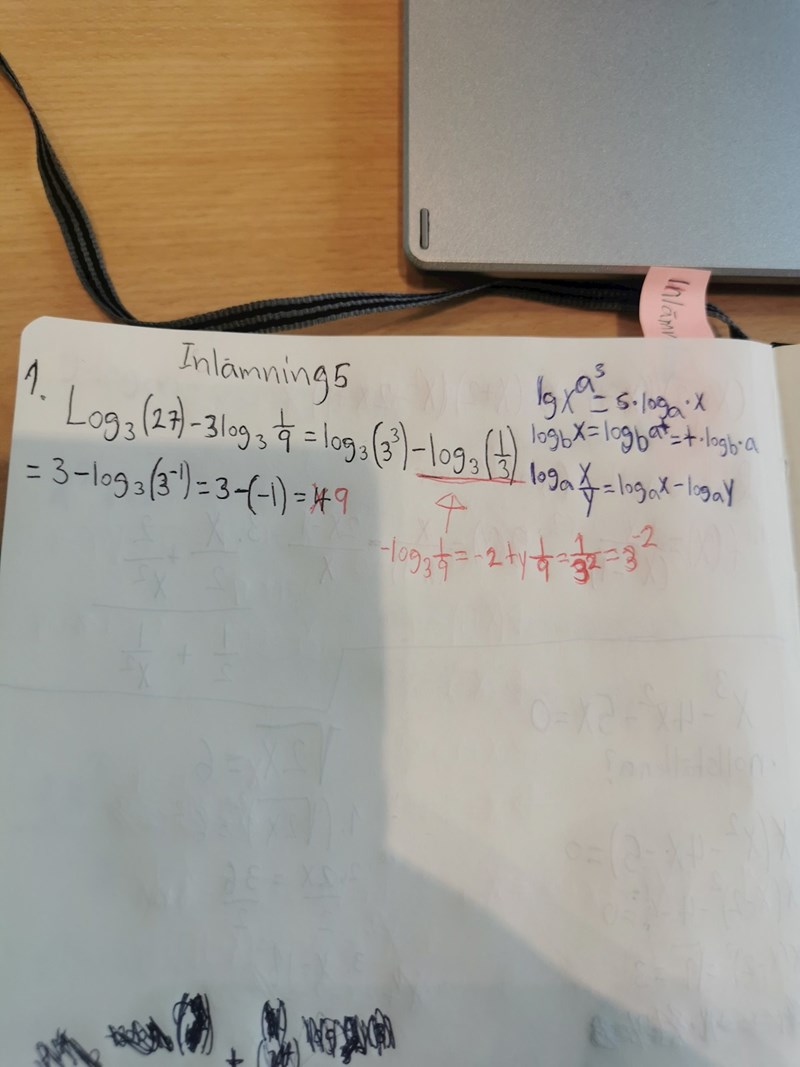 Inlämn
Inlämning 5
1.
Log₃(27) - 3log₃ 1/9 = log₃(3³) - log₃(1/3)
= 3 - log₃(3⁻¹) = 3 - (-1) = 4 9
lg x^a³ = s · logₐ · x
log_b x = log_b aᵗ = t · log_b · a
logₐ x/y = logₐ x - logₐ y
-log₃ 1/9 = -2 ty 1/9 = 1/3² = 3⁻²